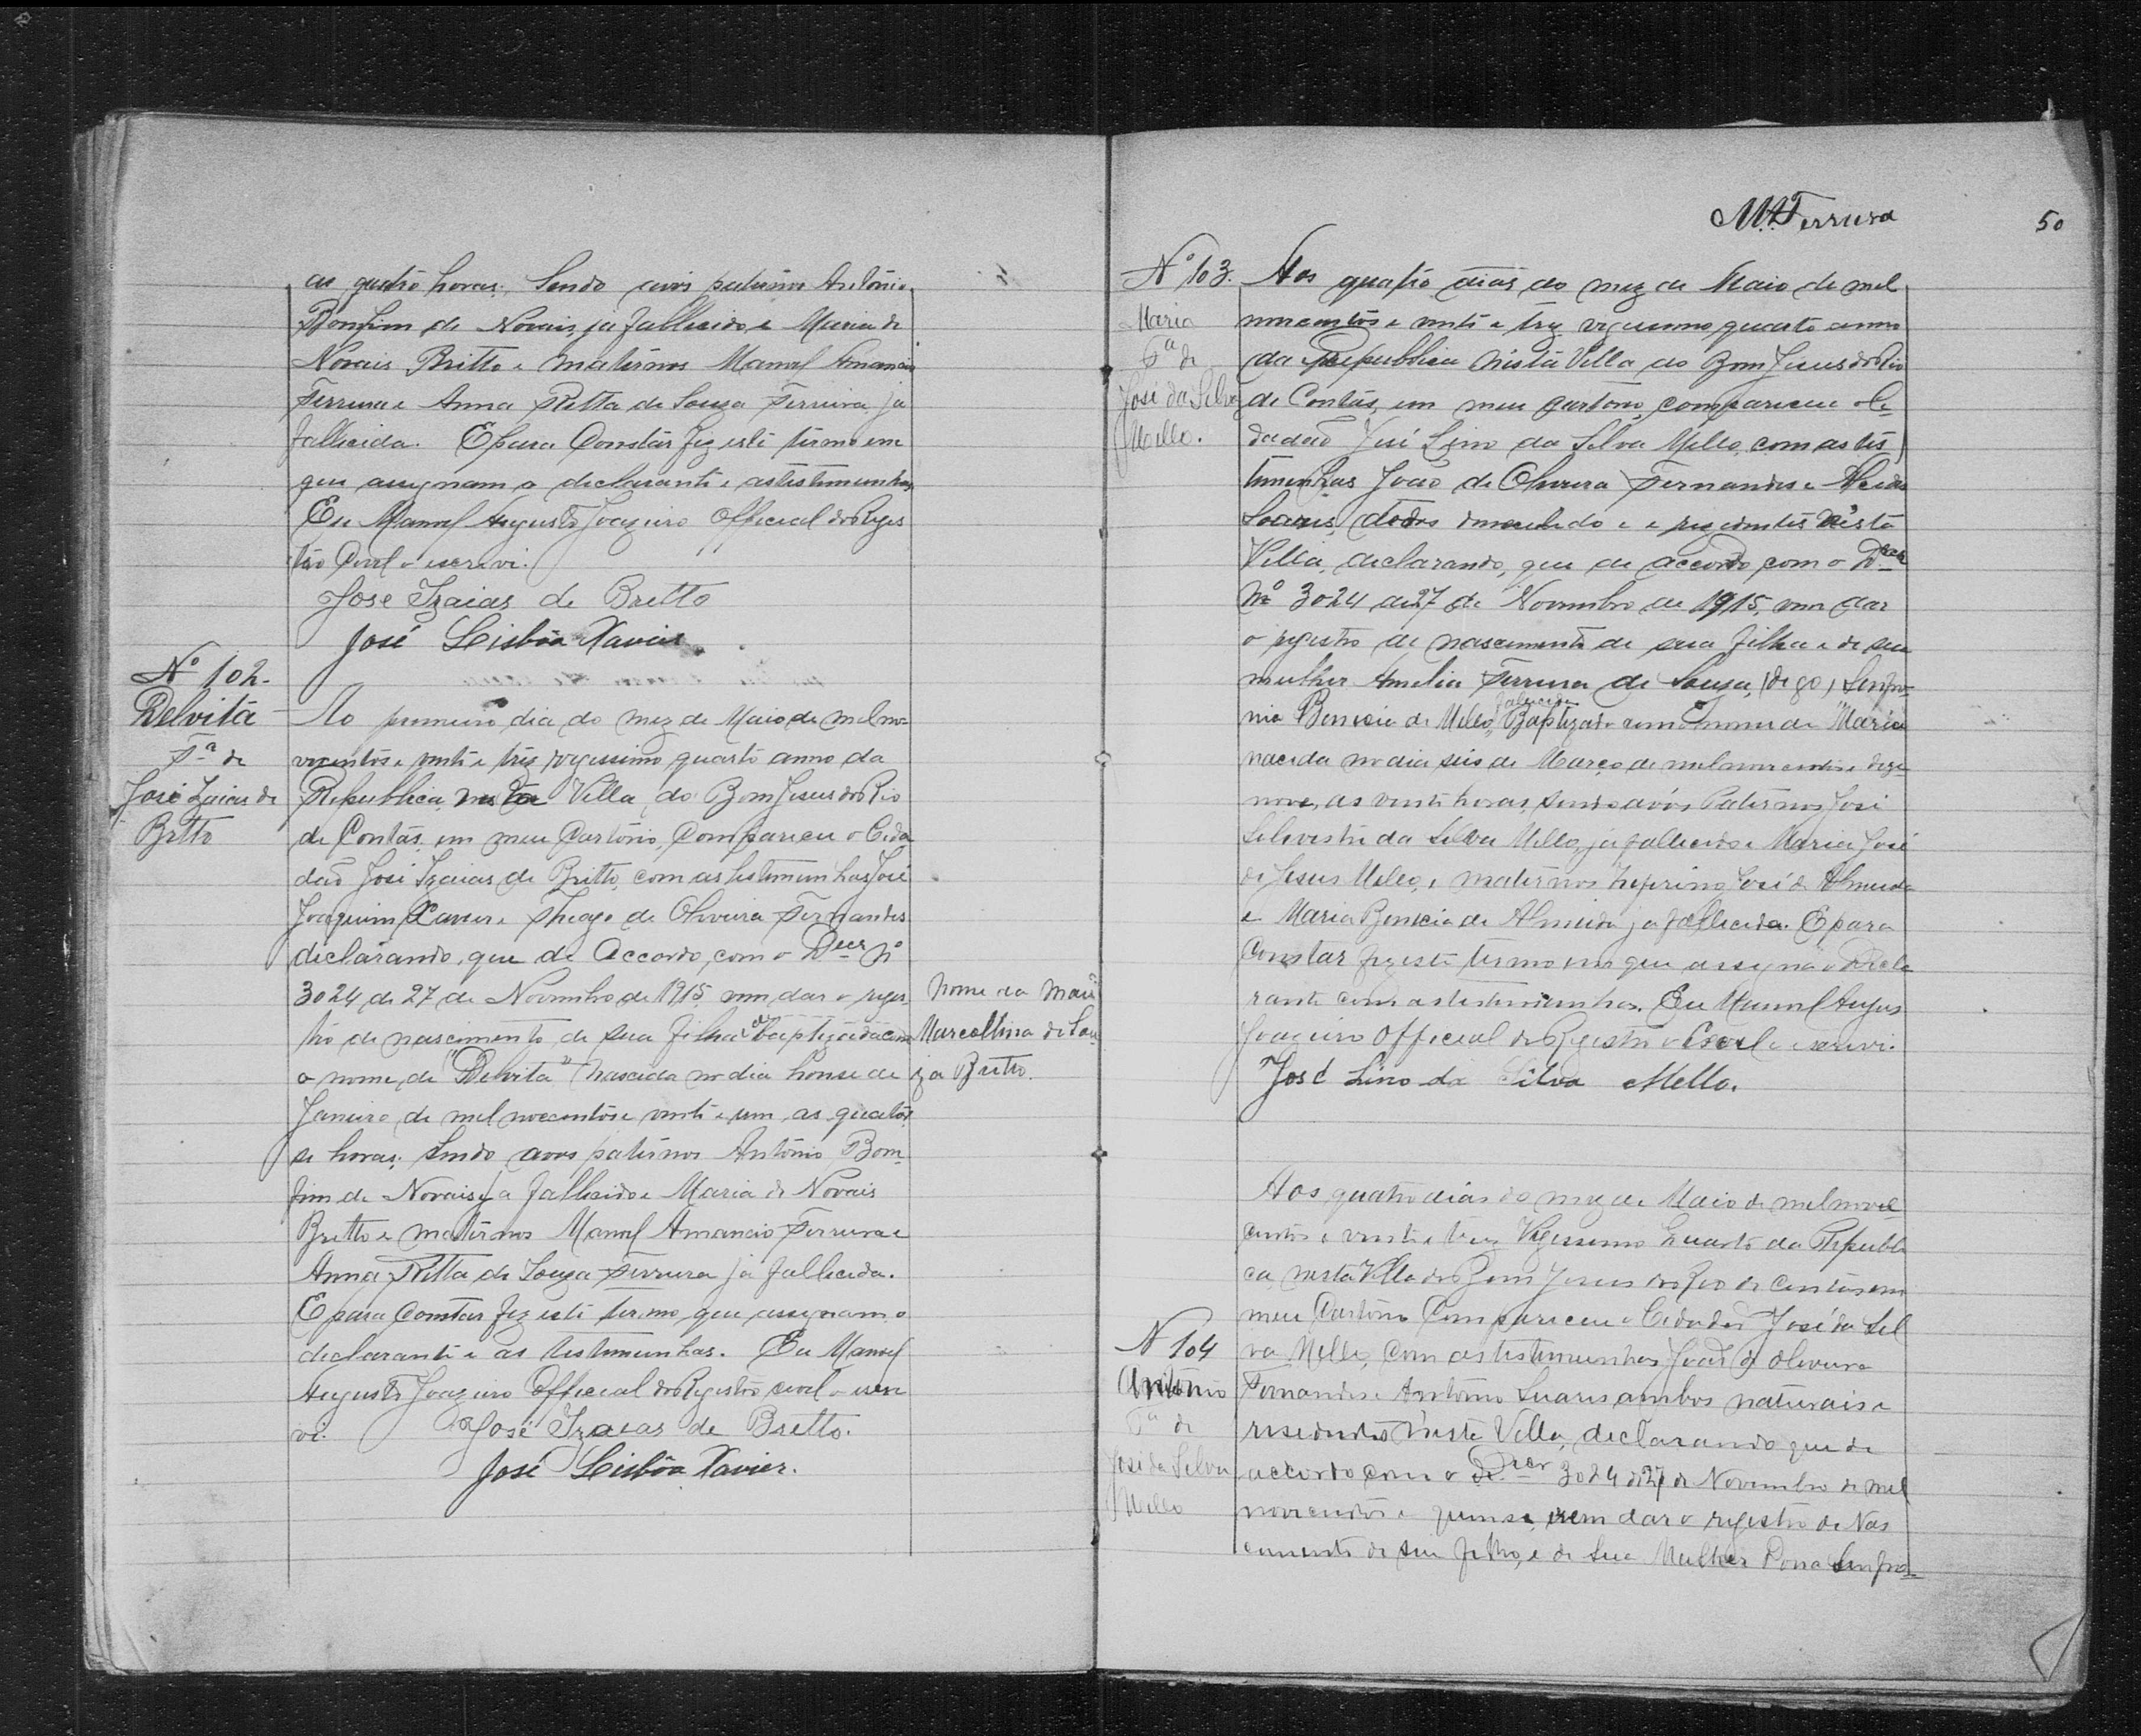 as quatro horas. Sendo avós paternos Antônio
Bomfim de Novais já fallecido e Maria de
Novais Britto e maternos Manoel Amancio
Ferreira e Anna Ritta de Souza Ferreira já
fallecida. E para Constár fiz este termo em
que assignam o declarante e as testemunhas
Eu Manoel Augusto Joazeiro Official do Regis
tro Civil o escrevi.
Jose Izaias de Britto
José Lisbôa Xavier.
Nº 102-
Delvita
Fª de
José Izaias de
Britto
Ao primeiro dia do mez de Maio de mil no-
vecentos e vinte e trez vigessimo quarto anno da
Republica, nesta Villa do Bom Jesus do Rio
de Contas, em meu Cartório, Compareceu o Cida
dão José Izaias de Britto, com as testemunhas José
Joaquim Xavier e Thiago de Oliveira Fernandes
declarando, que de Accordo, com o Decr nº
3024 de 27 de Novembro de 1915, vem dar o regis-
tro de nascimento de sua filha baptizada com
o nome de "Delvita" Nascida no dia honse de
Janeiro de mil novecentos e vinte e um, as quator
se horas; Sendo avós paternos Antônio Bom-
fim de Novais já fallecido e Maria de Novais
Britto e maternos Manoel Amancio Ferreira e
Anna Ritta de Souza Ferreira já fallecida.
E para Constar fiz este termo, que assignam o
declarante e as testemunhas. Eu Manoel
Augusto Joazeiro Official do Registro civil o escre
vi.
José Izaias de Britto.
José Lisbôa Xavier.
Nome da Mãi
Marcollina de Sou-
za Britto.
M.A. Ferreira
50
Nº 103.
Maria
Fª de
José da Silva
Mello.
Aos quatro dias do mez de Maio de mil
novecentos e vinte e trez vigessimo quarto anno
da Republica nésta Villa do Bom Jesus do Rio
de Contas, em meu Cartorio, compareceu o Ci-
dadão José Lino da Silva Mello, com as tes-
temunhas João de Oliveira Fernandes e Alcides
Soares, todos e rezidentes nésta
Villa, declarando, que de accordo, com o Decr
Nº 3024 de 27 de Novembro de 1915, vem dar
o registro de nascimento de sua filha e de sua
mulher Amelia Ferreira de Souza, (digo) Senfro-
nia Benicia de Mello, fallecida Baptizada com o nome de "Maria
nacida no dia seis de Março de mil novecentos e deze-
nove, as vinte horas, sendo avós Paternos José
Silvestre da Silva Mello, já fallecido e Maria José
de Jesus Mello, e maternos Zeferino José de Almeida
e Maria Benicia de Almeida já fallecida. E para
Constar fiz este termo em que assigna o Decla
rante com as testemunhas. Eu Manoel Augus
Joazeiro Official do Registro Civil o escrevi.
José Lino da Silva Mello.
Nº 104
Antônio
Fº de
José da Silva
Mello
Aos quatro dias do mez de Maio de mil nove-
centos e vinte e trez Vigessimo Quarto da Republi
ca, nesta Villa do Bom Jesus do Rio de Contas, em
meu Cartorio Compareceu o Cidadão José da Sil
va Mello, com as testemunhas João de Oliveira
Fernandes e Antônio Suares ambos naturais e
residentes nesta Villa, declarando que de
accordo com o Decr 3024 de 27 de Novembro de mil
novecentos e quinse, vem dar o registro de Nas
cimento de seu filho, e de sua Mulher Dona Senfro-